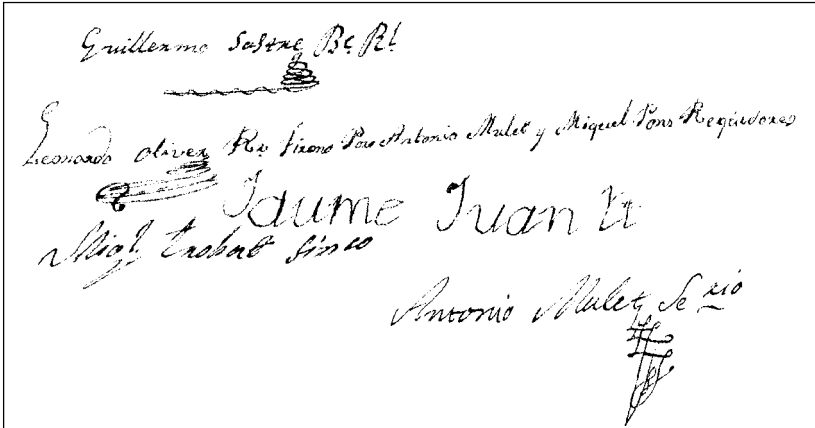 Guillermo Sastre Bᵉ Rˡ
Leonardo oliver Rʳ firono Por Antonio Mulet y Miquel Pons Regidores
Jaume Juan
Miqˡ trobat sinco
Antonio Mulet Seʳⁱᵒ